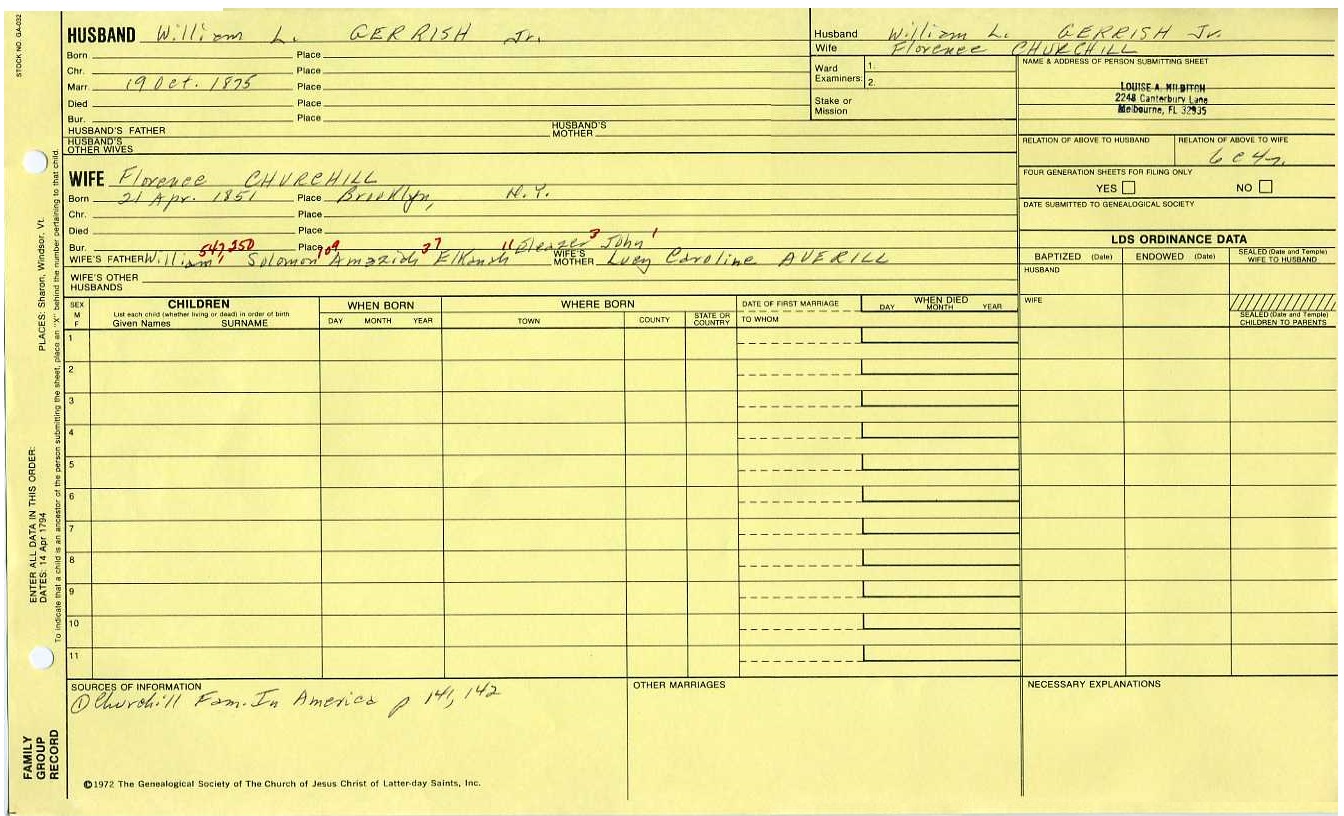 STOCK NO. GA-032
HUSBAND William L. GERRISH Jr.
Born Place
Chr. Place
Marr. 19 Oct. 1875 Place
Died Place
Bur. Place
HUSBAND'S FATHER HUSBAND'S MOTHER
HUSBAND'S OTHER WIVES
Husband William L. GERRISH Jr.
Wife Florence CHURCHILL
Ward Examiners: 1.
2.
Stake or Mission
NAME & ADDRESS OF PERSON SUBMITTING SHEET
LOUISE A.
2248 Canterbury Lane
Melbourne, FL 32935
RELATION OF ABOVE TO HUSBAND RELATION OF ABOVE TO WIFE
6c4r.
FOUR GENERATION SHEETS FOR FILING ONLY
YES NO
DATE SUBMITTED TO GENEALOGICAL SOCIETY
WIFE Florence CHURCHILL
Born 21 Apr. 1851 Place Brooklyn, N.Y.
Chr. Place
Died Place
Bur. Place
547,250 109 37 11 Eleazer 3 John 1
WIFE'S FATHER William, Solomon Amaziah Elkanah WIFE'S MOTHER Lucy Caroline AVERILL
WIFE'S OTHER HUSBANDS
LDS ORDINANCE DATA
BAPTIZED (Date) ENDOWED (Date) SEALED (Date and Temple) WIFE TO HUSBAND
HUSBAND
WIFE
SEALED (Date and Temple) CHILDREN TO PARENTS
SEX M F
CHILDREN
List each child (whether living or dead) in order of birth
Given Names SURNAME
WHEN BORN
DAY MONTH YEAR
WHERE BORN
TOWN COUNTY STATE OR COUNTRY
DATE OF FIRST MARRIAGE
TO WHOM
WHEN DIED
DAY MONTH YEAR
1
2
3
4
5
6
7
8
9
10
11
SOURCES OF INFORMATION
① Churchill Fam. In America p 141, 142
OTHER MARRIAGES
NECESSARY EXPLANATIONS
©1972 The Genealogical Society of The Church of Jesus Christ of Latter-day Saints, Inc.
FAMILY GROUP RECORD
ENTER ALL DATA IN THIS ORDER:
DATES: 14 Apr 1794 PLACES: Sharon, Windsor, Vt.
To indicate that a child is an ancestor of the person submitting the sheet, place an "X" behind the number pertaining to that child.